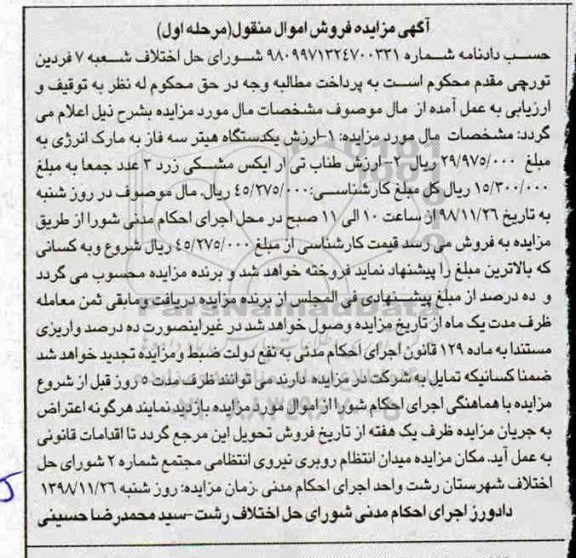 آگهی مزایده فروش اموال منقول(مرحله اول)
حسب دادنامه شماره ۹۸۰۹۹۷۱۳۲۴۷۰۰۳۳۱ شورای حل اختلاف شعبه ۷ فردین
تورچی مقدم محکوم است به پرداخت مطالبه وجه در حق محکوم له نظر به توقیف و
ارزیابی به عمل آمده از مال موصوف مشخصات مال مورد مزایده بشرح ذیل اعلام می
گردد: مشخصات مال مورد مزایده: ۱-ارزش یکدستگاه هیتر سه فاز به مارک انرژی به
مبلغ ۲۹/۹۷۵/۰۰۰ ریال ۲-ارزش طناب تی ار ایکس مشکی زرد ۳ عدد جمعا به مبلغ
۱۵/۳۰۰/۰۰۰ ریال کل مبلغ کارشناسی:۴۵/۲۷۵/۰۰۰ ریال، مال موصوف در روز شنبه
به تاریخ ۹۸/۱۱/۲۶ از ساعت ۱۰ الی ۱۱ صبح در محل اجرای احکام مدنی شورا از طریق
مزایده به فروش می رسد قیمت کارشناسی از مبلغ ۴۵/۲۷۵/۰۰۰ ریال شروع و به کسانی
که بالاترین مبلغ را پیشنهاد نماید فروخته خواهد شد و برنده مزایده محسوب می گردد
و ده درصد از مبلغ پیشنهادی فی المجلس از برنده مزایده دریافت و مابقی ثمن معامله
ظرف مدت یک ماه از تاریخ مزایده وصول خواهد شد در غیر اینصورت ده درصد واریزی
مستندا به ماده ۱۲۹ قانون اجرای احکام مدنی به نفع دولت ضبط و مزایده تجدید خواهد شد
ضمنا کسانیکه تمایل به شرکت در مزایده دارند می توانند ظرف مدت ۵ روز قبل از شروع
مزایده با هماهنگی اجرای احکام شورا از اموال مورد مزایده بازدید نمایند هرگونه اعتراض
به جریان مزایده ظرف یک هفته از تاریخ فروش تحویل این مرجع گردد تا اقدامات قانونی
به عمل آید. مکان مزایده میدان انتظام روبری نیروی انتظامی مجتمع شماره ۲ شورای حل
اختلاف شهرستان رشت واحد اجرای احکام مدنی .زمان مزایده: روز شنبه ۱۳۹۸/۱۱/۲۶
دادورز اجرای احکام مدنی شورای حل اختلاف رشت-سید محمدرضا حسینی
ParsNamadData